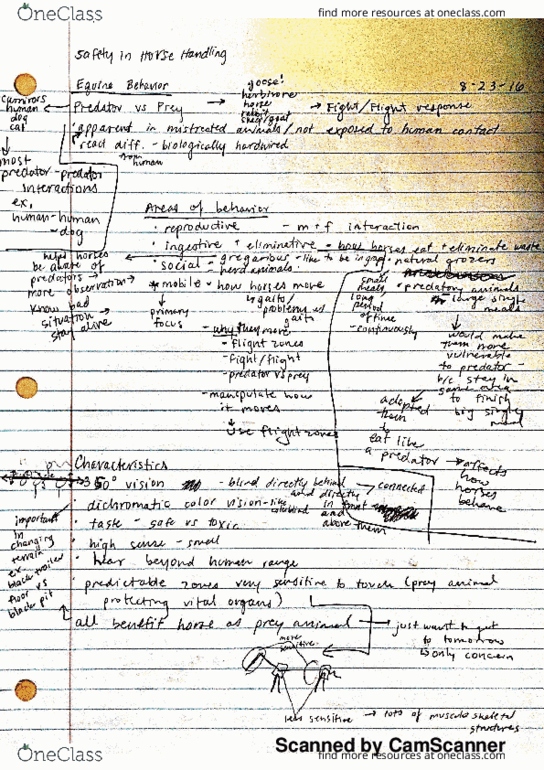 OneClass
find more resources at oneclass.com
Safety in Horse Handling
Equine Behavior
8-23-16
goose!
herbivore
horse
rabbit
sheep/goat
human
dog
cat
Predator vs Prey → → Fight/Flight response
• apparent in mistreated animals/not exposed to human contact
read diff. - biologically hardwired
from human
most
predator-predator
interactions
ex.
human-human
-dog
Areas of behavior
• reproductive - m+f interaction
• ingestive + eliminative - how horses eat + eliminate waste
• social - gregarious - like to be in group
- herd animals
• natural grazers
helps horses
be aware of
predators →
more observation →
know bad
situation →
stay alive
* mobile • how horses move
↳ gaits/
problems w/
gaits
primary
focus
- why they move
• flight zones
- fight/flight
- predator vs prey
- manipulate how
it moves
↳ use flight zones
small
meals,
long
period
of time
- continuously
• predatory animals
large single
meals
would make
them more
vulnerable
to predator -
b/c stay in
same area
to finish
big single
meal
adapted
them
to
eat like
a predator → affects
how
horses
behave
Characteristics
360° vision - blind directly behind
and directly
in front
and
above them
→ connected
dichromatic color vision - like
colorblind
• taste - safe vs toxic
• high sense - smell
• hear beyond human range
• predictable zones very sensitive to touch (prey animal
protecting vital organs)
important
in
changing
terrain
ex
black trailer
floor vs
black pit
all benefit horse as prey animal → just want to get
to tomorrow
↳ only concern
more
sensitive
less sensitive → lots of musculoskeletal
structures
Scanned by CamScanner
OneClass
find more resources at oneclass.com